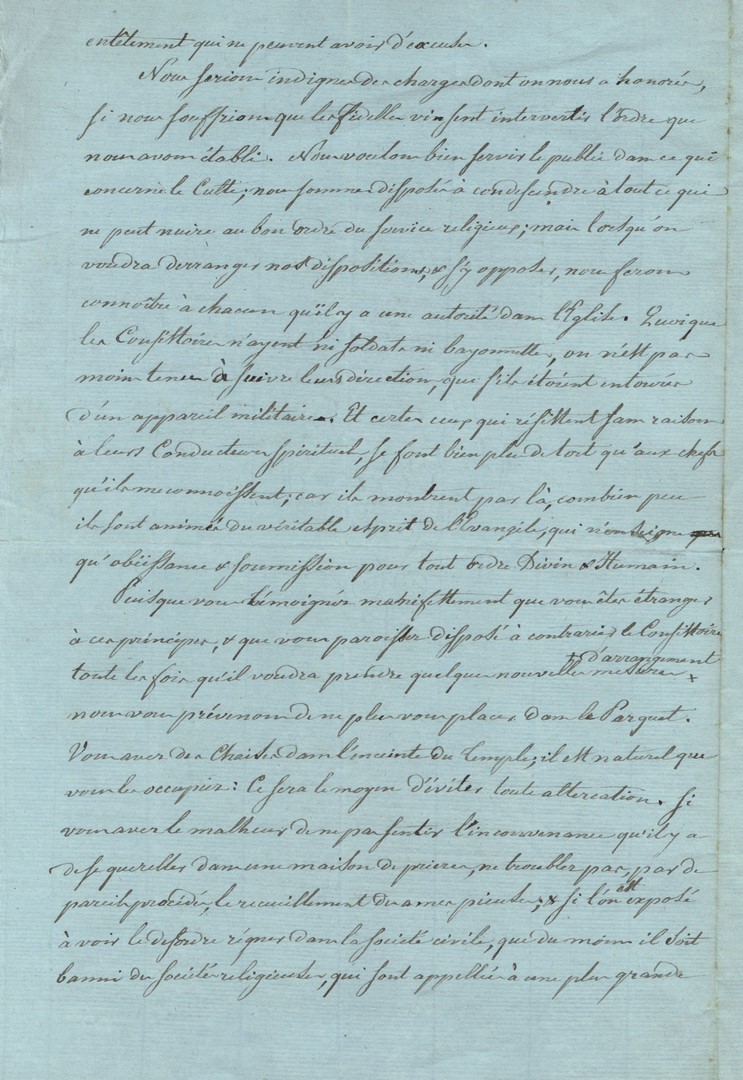 entêtement qui ne peuvent avoir d'excuse.
Nous serions indignes des charges dont on nous a honorés,
si nous souffrions que les fidelles vinssent intervertir l'ordre que
nous avons établi. Nous voulons bien servir le public dans ce qui
concerne le Culte; nous sommes disposés à condescendre à tout ce qui
ne peut nuire au bon ordre du service religieux; mais lorsqu'on
voudra derranger nos dispositions, & s'y opposer, nous ferons
connoître à chacun qu'il y a une autorité dans l'Eglise. Quoique
les Consistoires n'ayent ni soldats ni bayonnettes, on n'est pas
moins tenu à suivre leurs direction, que s'ils étoient entourés
d'un appareil militaire. Et certes ceux qui résistent sans raison
à leurs Conducteurs spirituels, se font bien plus de tort qu'aux chefs
qu'ils meconnoissent; car ils montrent par là, combien peu
ils sont animés du véritable esprit de l'Evangile, qui n'enseigne
qu'obéissance & soumission pour tout ordre Divin & Humain.
Puisque vous témoignés manifestement que vous êtes étranger
à ces principes, & que vous paroissez disposé à contrarier le Consistoire
toutes les fois qu'il voudra prendre quelques nouvelles mesures + d'arrangement
nous vous prévenons de ne plus vous placer dans le Parquet.
Vous avez des Chaises dans l'enceinte du Temple; il est naturel que
vous les occupiez: Ce sera le moyen d'éviter toute altercation. Si
vous avez le malheur de ne pas sentir l'inconvenance qu'il y a
de se quereller dans une maison de prieres, ne troublez pas, par de
pareils procédés, le recueillement des ames pieuses; & si l'on est exposé
à voir le desordre régner dans la société civile, que du moins il soit
banni des sociétés religieuses, qui sont appellées à une plus grande